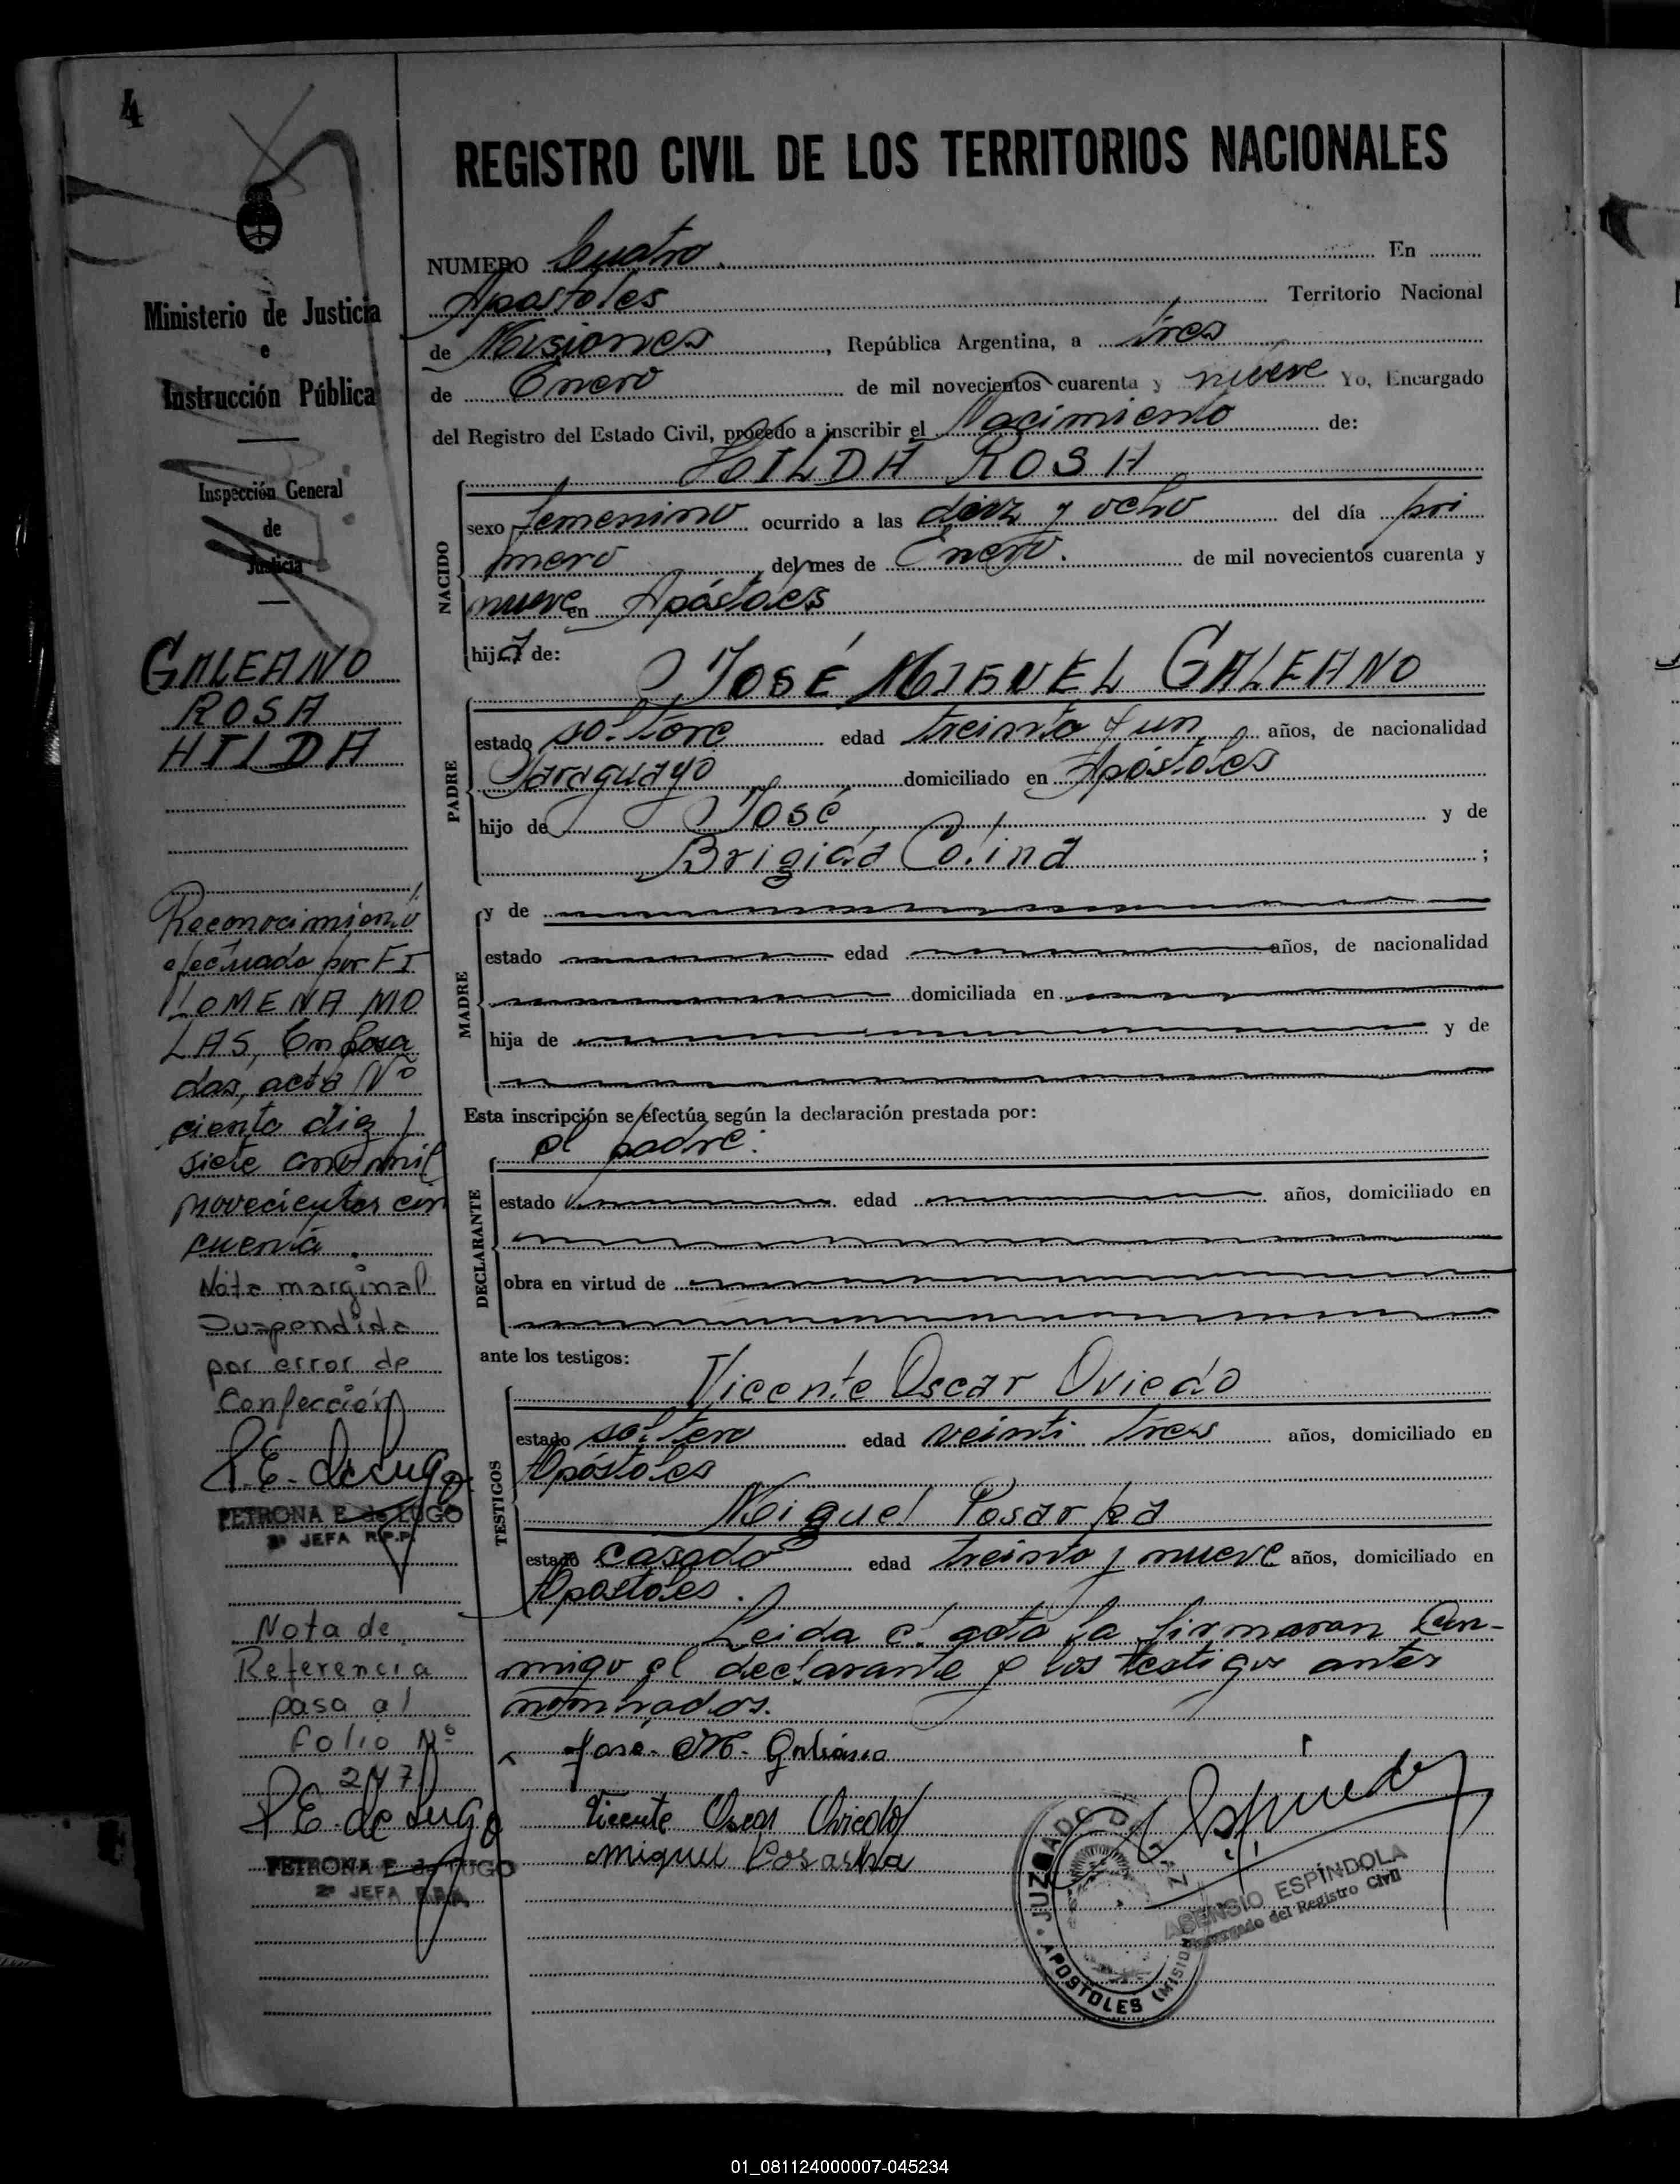 4
Ministerio de Justicia
e
Instrucción Pública
Inspección General
de
Justicia
GALEANO
ROSA
HILDA
Reconocimiento
efectuado por FI
LOMENA MO
LAS, En Posa
das, acta Nº
ciento diez y
siete año mil
novecientos cin
cuenta.
Nota marginal
Suspendida
por error de
Confección
P.E. de Lugo
PETRONA E. de LUGO
2ª JEFA R.P.P.
Nota de
Referencia
pasa al
folio Nº
247
P.E. de Lugo
PETRONA E. de LUGO
2ª JEFA R.P.P.
REGISTRO CIVIL DE LOS TERRITORIOS NACIONALES
NUMERO Cuatro. En
Apostoles Territorio Nacional
de Misiones, República Argentina, a tres
de Enero de mil novecientos cuarenta y nueve Yo, Encargado
del Registro del Estado Civil, procedo a inscribir el Nacimiento de:
HILDA ROSA
NACIDO
sexo femenino ocurrido a las diez y ocho del día pri
mero del mes de Enero. de mil novecientos cuarenta y
nueve en Apóstoles
hija de:
JOSÉ MIGUEL GALEANO
PADRE
estado soltero edad treinta y un años, de nacionalidad
Paraguayo domiciliado en Apóstoles
hijo de José y de
Brigida Colina ;
MADRE
y de
estado edad años, de nacionalidad
domiciliada en
hija de y de
Esta inscripción se efectúa según la declaración prestada por:
el padre.
DECLARANTE
estado edad años, domiciliado en
obra en virtud de
ante los testigos:
TESTIGOS
Vicente Oscar Oviedo
estado soltero edad veinti tres años, domiciliado en
Apóstoles
Miguel Posarka
estado casado edad treinta y nueve años, domiciliado en
Apostoles.
Leida el acta la firmaran Con-
migo el declarante y los testigos antes
nombrados.
Jose M. Galeano
Vicente Oscar Oviedo
Miguel Posarka
Espíndola
JUZGADO DE PAZ
APOSTOLES (MISIONES)
ASENSIO ESPÍNDOLA
Encargado del Registro Civil
01_081124000007-045234